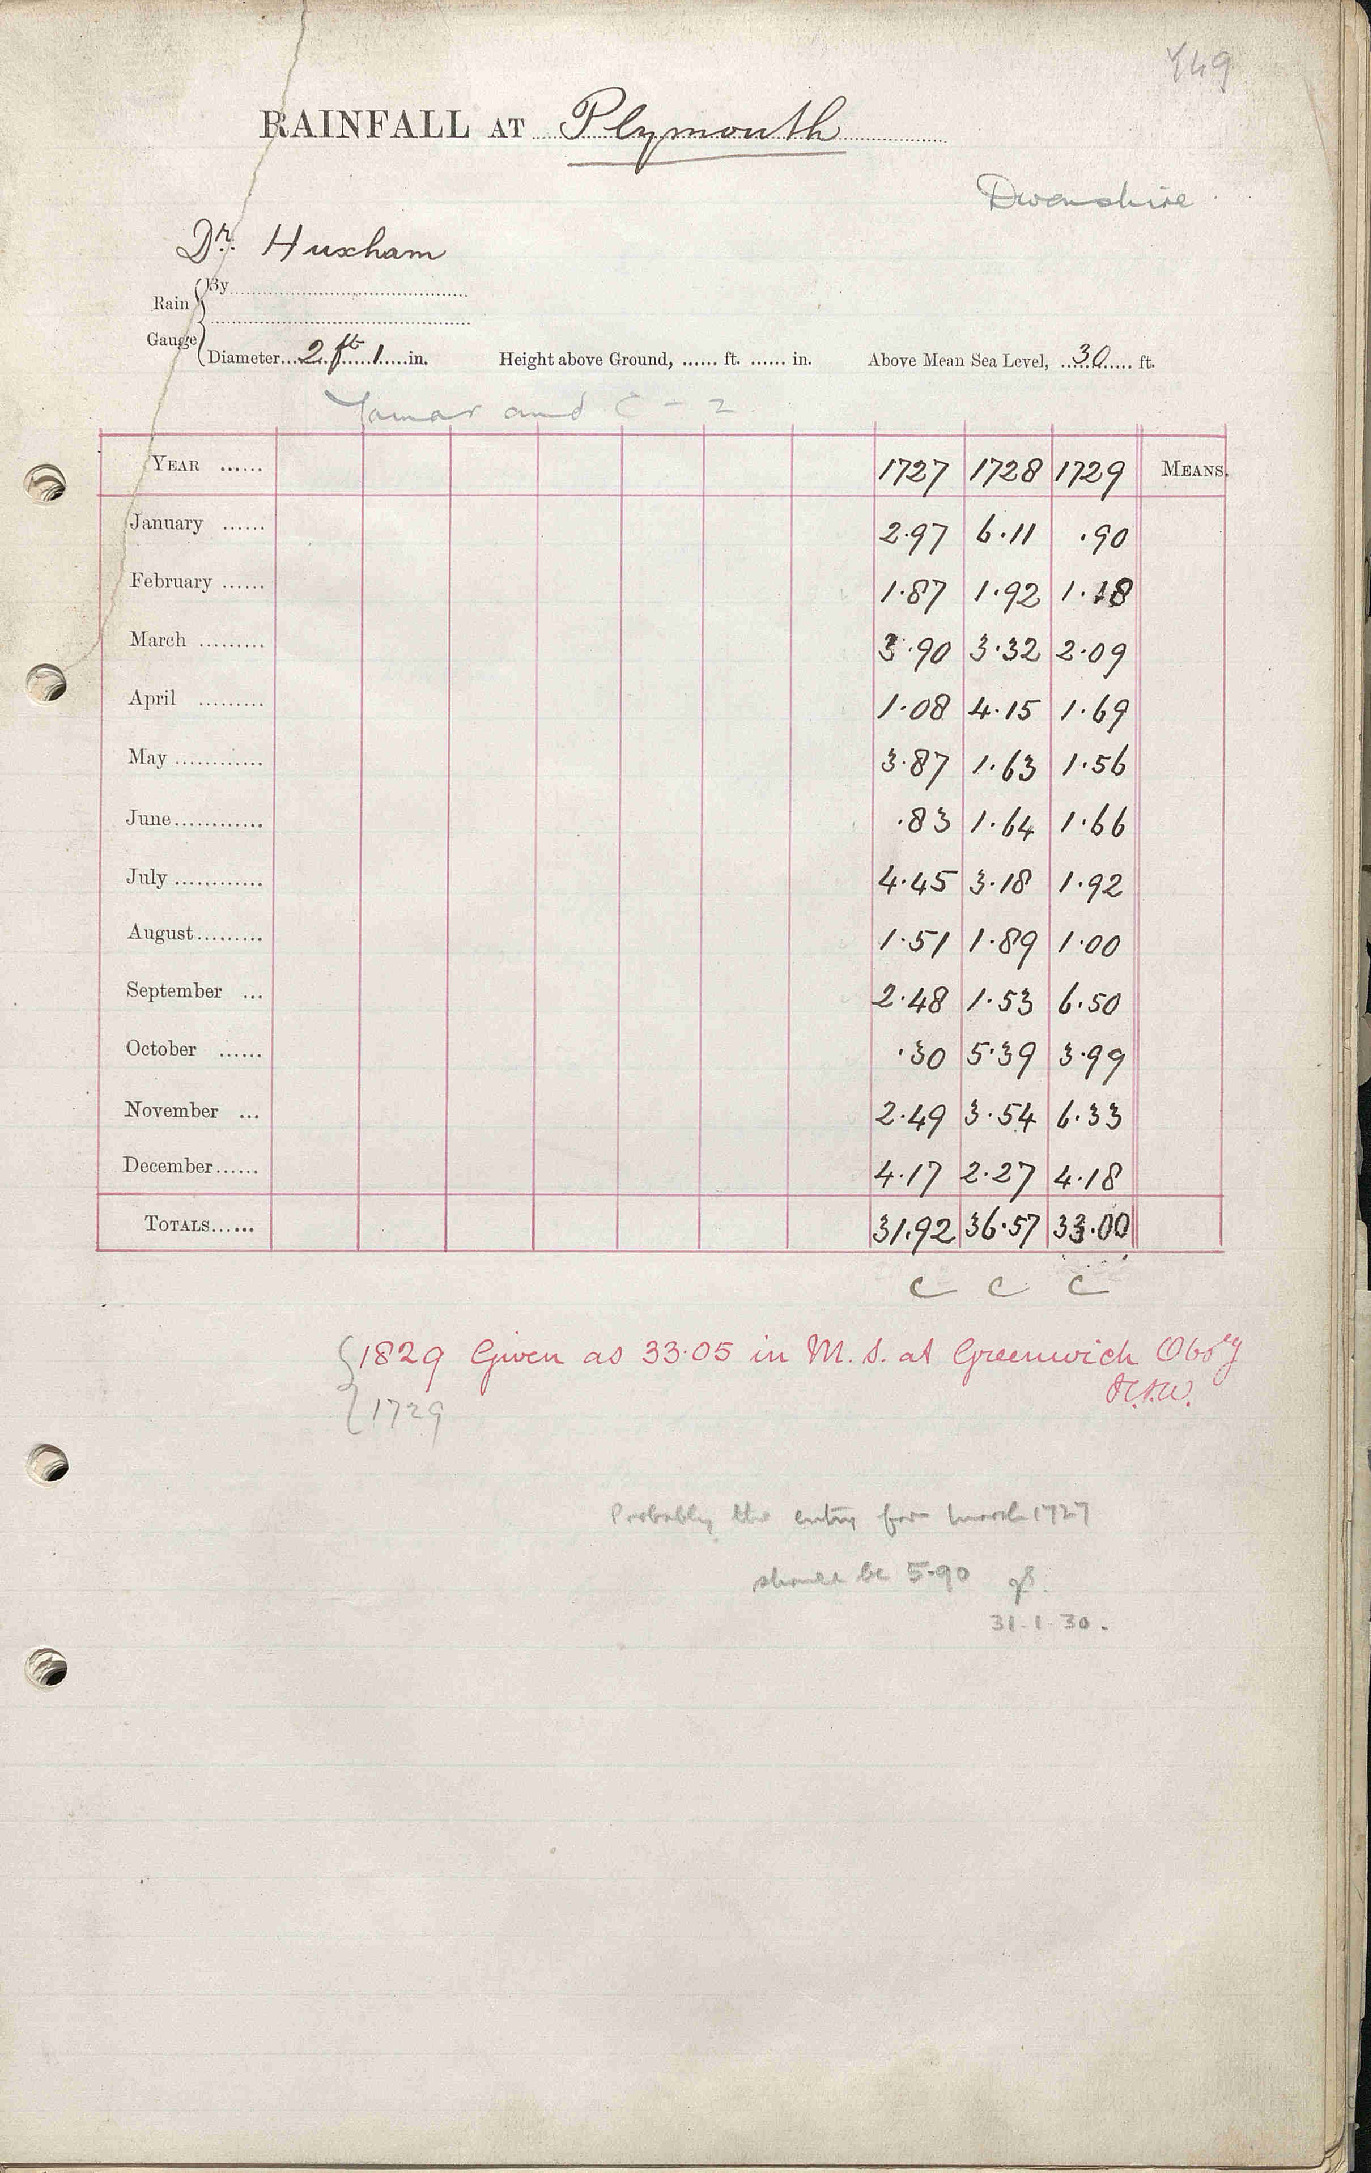 449
RAINFALL AT Plymouth
Devonshire
Dr. Huxham
Rain Gauge { By
Diameter 2 ft 1 in. Height above Ground, ...... ft. ...... in. Above Mean Sea Level, 30 ft.
Tamar and C - 2
YEAR ...... 1727 1728 1729 MEANS.
January ...... 2.97 6.11 .90
February ...... 1.87 1.92 1.18
March ......... 3.90 3.32 2.09
April ......... 1.08 4.15 1.69
May ............ 3.87 1.63 1.56
June ............ .83 1.64 1.66
July ............ 4.45 3.18 1.92
August ......... 1.51 1.89 1.00
September ... 2.48 1.53 6.50
October ...... .30 5.39 3.99
November ... 2.49 3.54 6.33
December ...... 4.17 2.27 4.18
TOTALS ...... 31.92 36.57 33.00
C C C
{ 1829 Given as 33.05 in M.S. at Greenwich Obsy
{ 1729
Probably the entry for March 1727
should be 5.90
31.1.30.